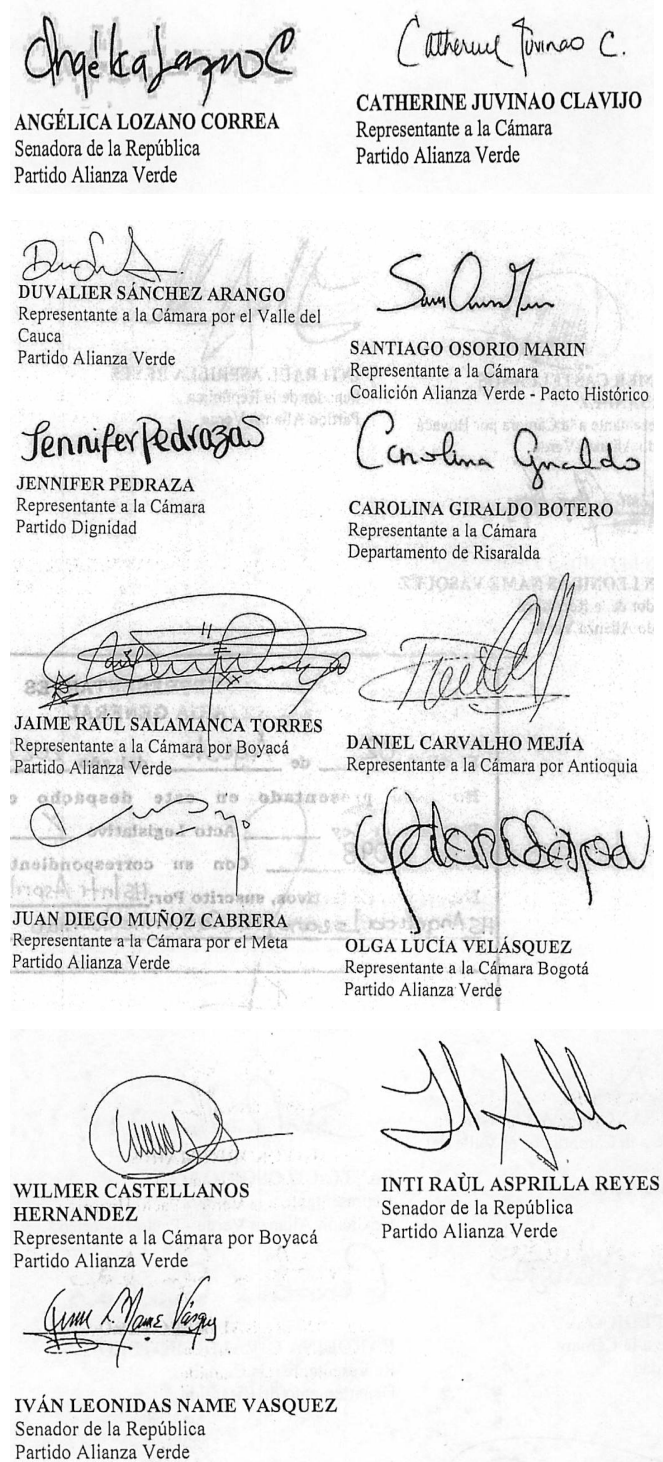 Angélica Lozano C
Catherine Juvinao C.
ANGÉLICA LOZANO CORREA
Senadora de la República
Partido Alianza Verde
CATHERINE JUVINAO CLAVIJO
Representante a la Cámara
Partido Alianza Verde
DUVALIER SÁNCHEZ ARANGO
Representante a la Cámara por el Valle del
Cauca
Partido Alianza Verde
SANTIAGO OSORIO MARIN
Representante a la Cámara
Coalición Alianza Verde - Pacto Histórico
Jennifer Pedraza S
JENNIFER PEDRAZA
Representante a la Cámara
Partido Dignidad
Carolina Giraldo
CAROLINA GIRALDO BOTERO
Representante a la Cámara
Departamento de Risaralda
JAIME RAÚL SALAMANCA TORRES
Representante a la Cámara por Boyacá
Partido Alianza Verde
DANIEL CARVALHO MEJÍA
Representante a la Cámara por Antioquia
JUAN DIEGO MUÑOZ CABRERA
Representante a la Cámara por el Meta
Partido Alianza Verde
OLGA LUCÍA VELÁSQUEZ
Representante a la Cámara Bogotá
Partido Alianza Verde
WILMER CASTELLANOS
HERNANDEZ
Representante a la Cámara por Boyacá
Partido Alianza Verde
INTI RAÙL ASPRILLA REYES
Senador de la República
Partido Alianza Verde
IVÁN LEONIDAS NAME VASQUEZ
Senador de la República
Partido Alianza Verde